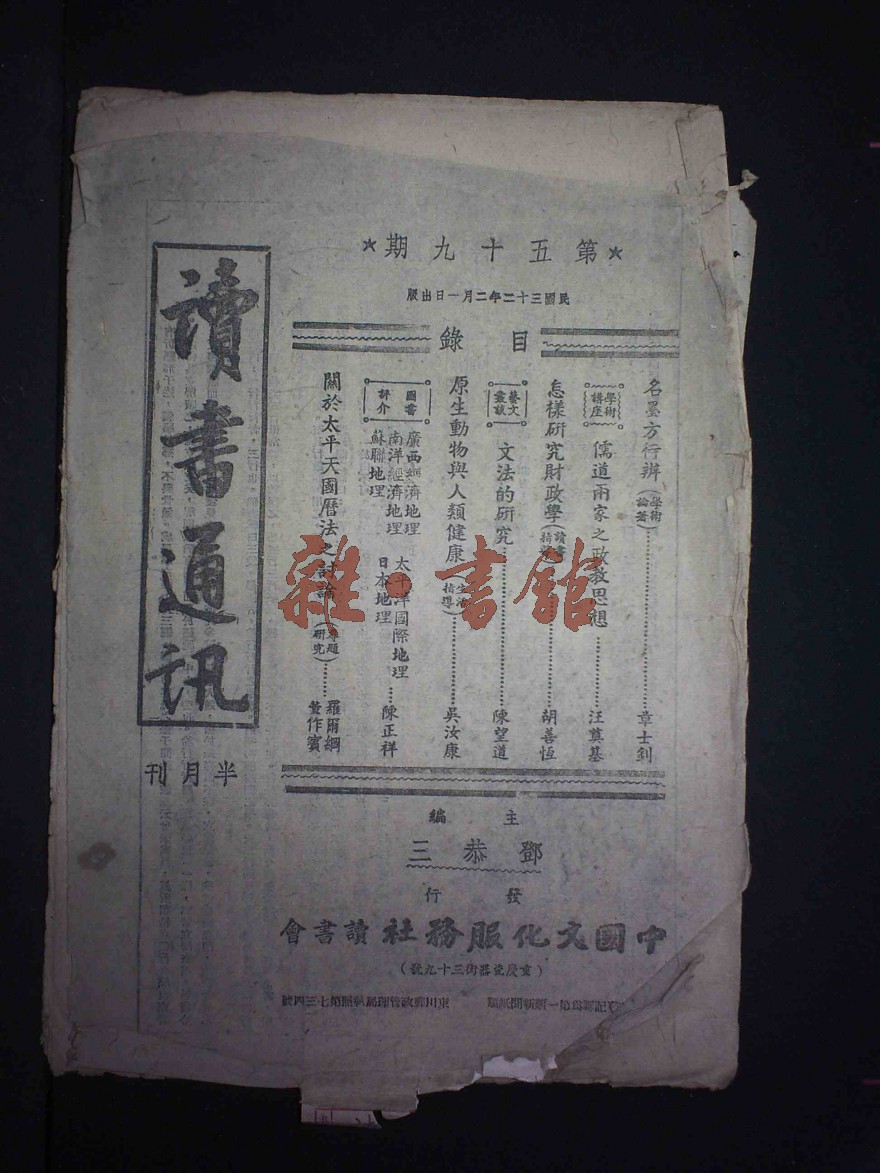 讀書通訊
半月刊
★第五十九期★
民國三十二年二月一日出版
目錄
名墨方行辨(學術論著)…………章士釗
學術講座 儒道兩家之政教思想…………汪奠基
怎樣研究財政學(讀書指導)…………胡善恆
藝文叢談 文法的研究…………陳望道
原生動物與人類健康(生活指導)…………吳汝康
圖書評介
廣西經濟地理
南洋經濟地理 太平洋國際地理
蘇聯地理 日本地理
……陳正祥
關於太平天國曆法之討論(專題研究)……羅爾綱 董作賓
主編
鄧恭三
發行
中國文化服務社讀書會
(重慶瓷器街三十九號)
登記認爲第一類新聞紙類 東川郵政管理局執照第七三四號
雜·書館